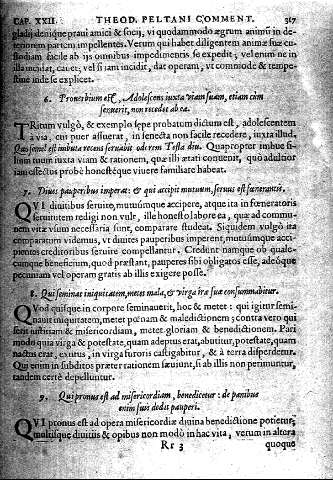 CAP. XXII. THEOD. PELTANI COMMENT. 317
gladij alienique praui amici & socij, vi quodammodo ægrum animũ in de-
teriorem partem impellentes. Verum qui habet diligentem animæ suæ cu-
stodiam facile ab ijs omnibus impedimentis se expedit; vel enim ne in
illa incidat, cauet; vel si iam incidat, dat operam, vt commode & tempe-
stiue inde se explicet.
6. Prouerbium est, Adolescens iuxta viam suam, etiam cùm
senuerit, non recedet ab ea.
TRitum vulgò, & exemplo sępe probatum dictum est, adolescentem
à via, cui puer assuerat, in senecta non facile recedere, iuxta illud.
Quo semel est imbuta recens seruabit odorem Testa diu. Quapropter imbue fi-
lium tuum iuxta viam & rationem, quæ illi ætati conuenit, quò adultior
iam effectus probè honestéque viuere familiare habeat.
7. Diues pauperibus imperat: & qui accipit mutuum, seruus est fœnerantis.
QVi diuitibus seruire, mutuúmque accipere, atque ita in fœneratoris
seruitutem redigi non vule, ille honesto labore ea, quæ ad commu-
nem vitæ vsum necessaria sunt, comparare studeat. Siquidem vulgò ita
comparatum videmus, vt diuites pauperibus imperent, mutuúmque acci-
pientes creditoribus seruire compellantur. Credunt namque ob qualé-
cumque beneficium, quod præstant, pauperes sibi obligatos esse, adeóque
pecuniam vel operam gratis ab illis exigere posse.
8. Qui seminat iniquitatem, metet mala, & virga iræ suæ consummabitur.
QVod quisque in corpore seminauerit, hoc & metet: qui igitur semi-
nauit iniquitatem, metet pœnam & maledictionem; contra vero qui
seuit iustitiam & misericordiam, metet gloriam & benedictionem. Pari
modo qui a virga & potestate, quam adeptus erat, abutitur, potestate, quam
nactus erat, exutus, in virga furoris castigabitur, & à terra disperdetur.
Qui enim in subditos præter rationem sæuiunt, si ab illis non perimuntur,
tandem certè depelluntur.
9. Qui pronus est ad misericordiam, benedicetur: de panibus
enim suis dedit pauperi.
QVi pronus est ad opera misericordiæ diuina benedictione potietur;
multisque diuitiis & opibus non modò in hac vita, verum in altera
Rr 3 quoque